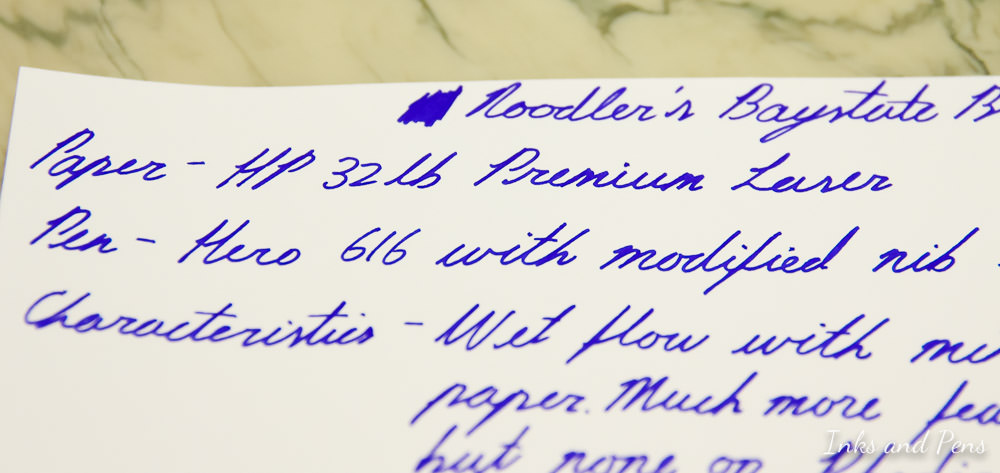 Noodler's Baystate B
Paper - HP 32lb Premium Laser
Pen - Hero 616 with modified nib -
Characteristics - Wet flow with mu
paper. Much more fea
but none on
Inks and Pens